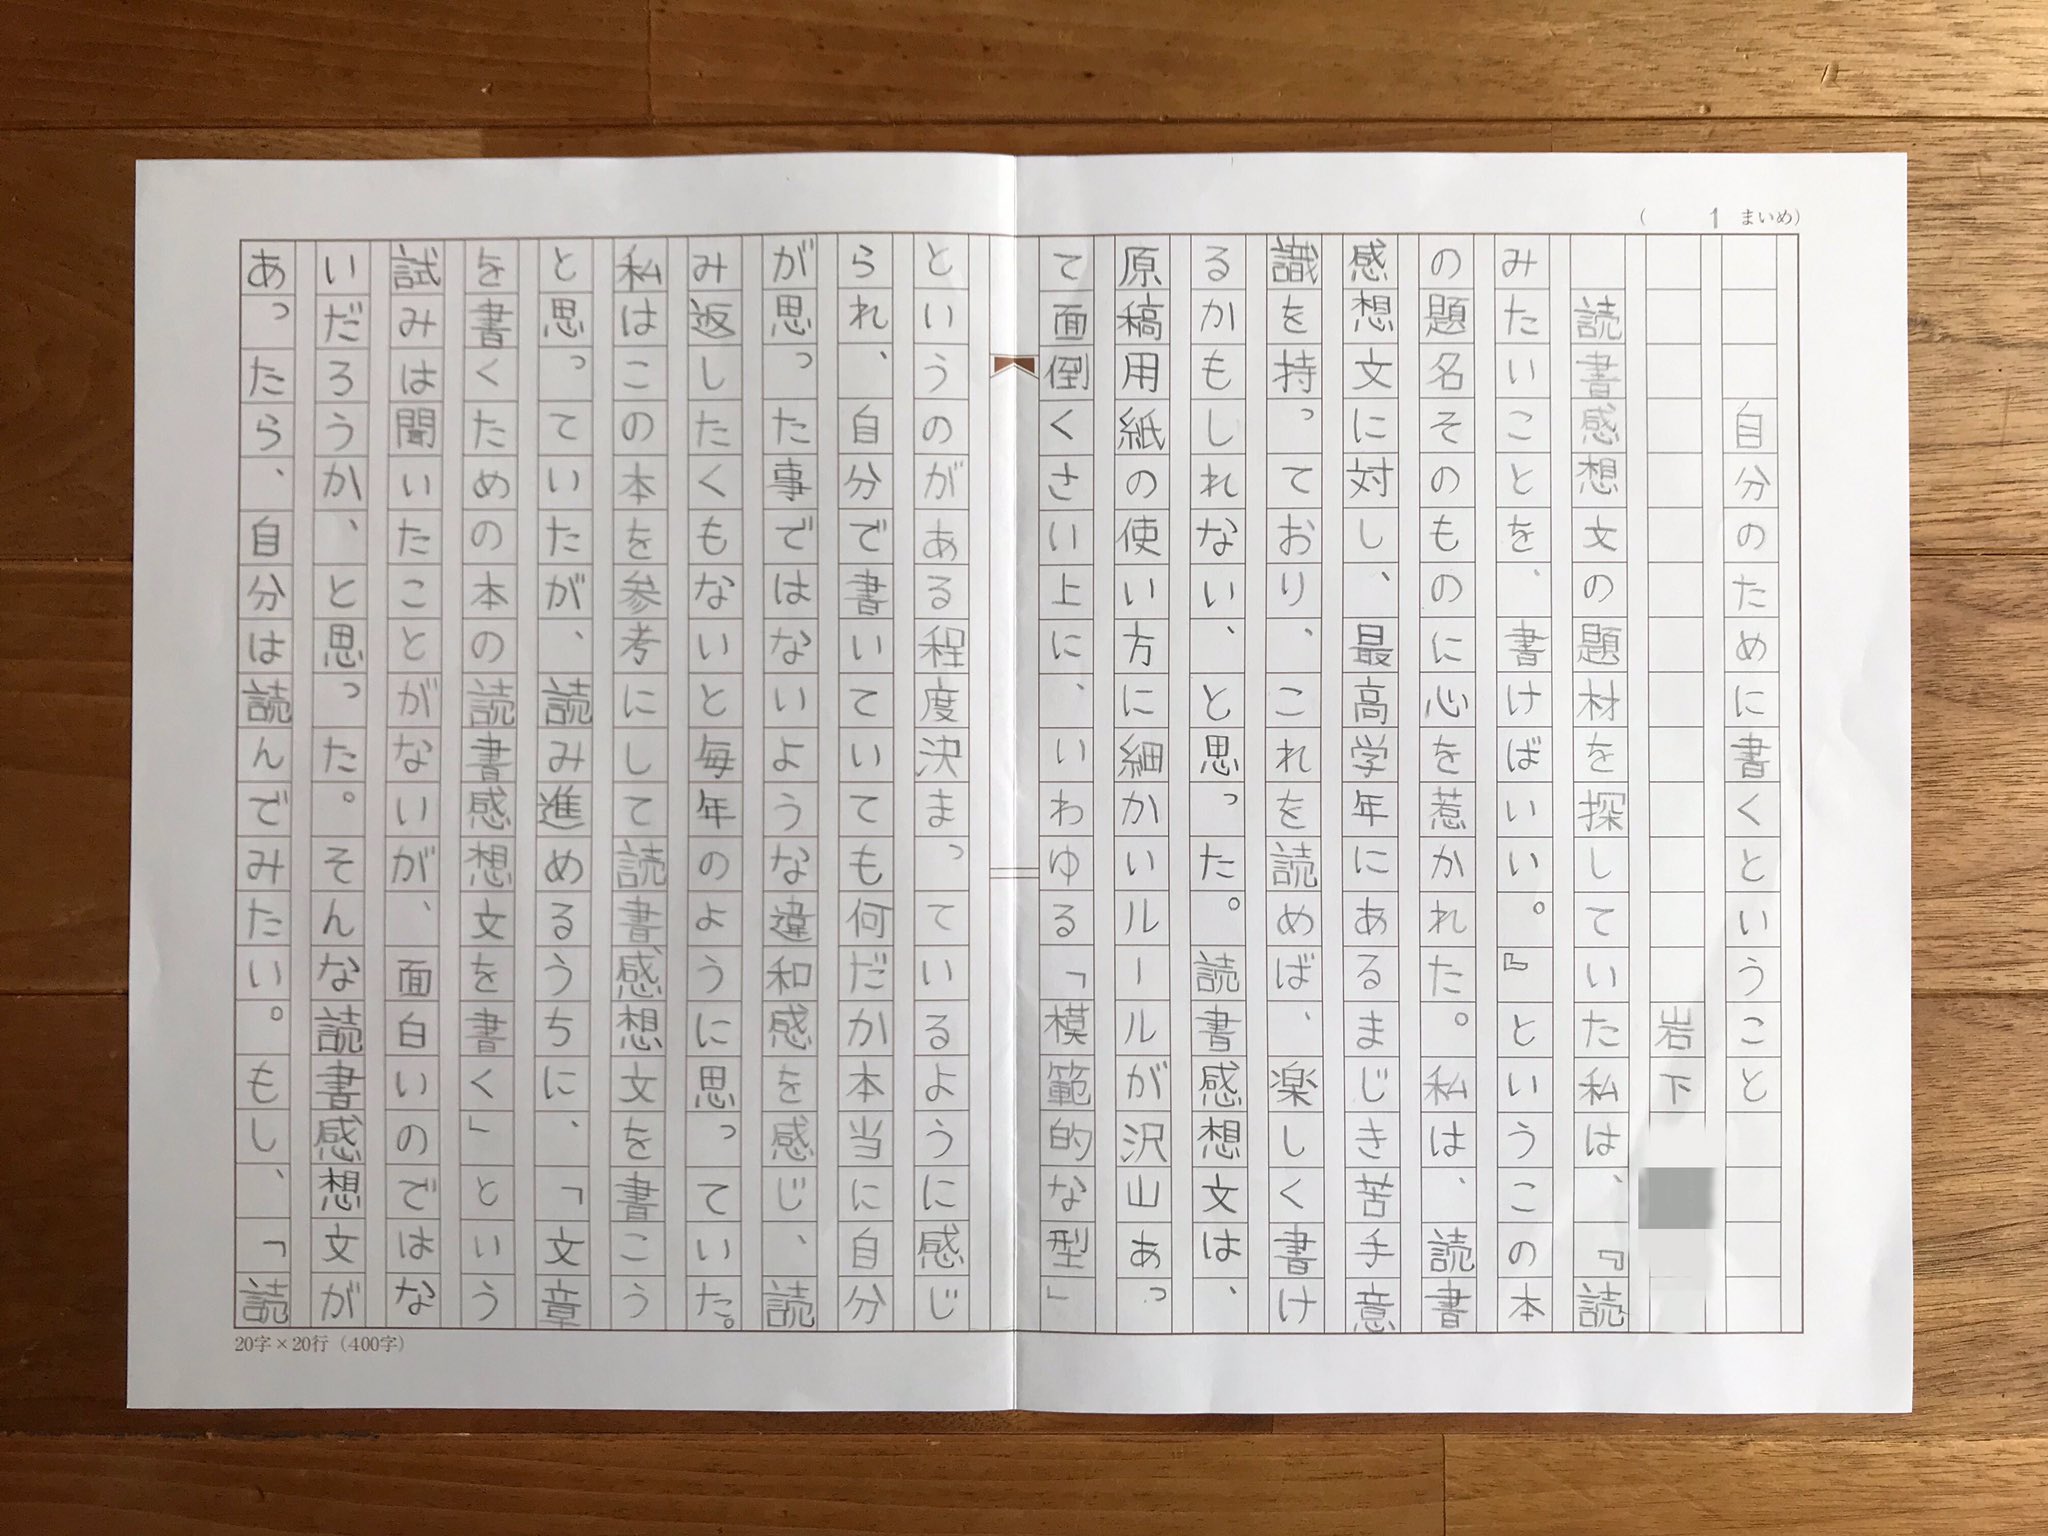 （　1　まいめ）
自分のために書くということ
岩下
読書感想文の題材を探していた私は、『読
みたいことを、書けばいい。』というこの本
の題名そのものに心を惹かれた。私は、読書
感想文に対し、最高学年にあるまじき苦手意
識を持っており、これを読めば、楽しく書け
るかもしれない、と思った。読書感想文は、
原稿用紙の使い方に細かいルールが沢山あっ
て面倒くさい上に、いわゆる「模範的な型」
というのがある程度決まっているように感じ
られ、自分で書いていても何だか本当に自分
が思った事ではないような違和感を感じ、読
み返したくもないと毎年のように思っていた。
私はこの本を参考にして読書感想文を書こう
と思っていたが、読み進めるうちに、「文章
を書くための本の読書感想文を書く」という
試みは聞いたことがないが、面白いのではな
いだろうか、と思った。そんな読書感想文が
あったら、自分は読んでみたい。もし、「読
20字×20行（400字）